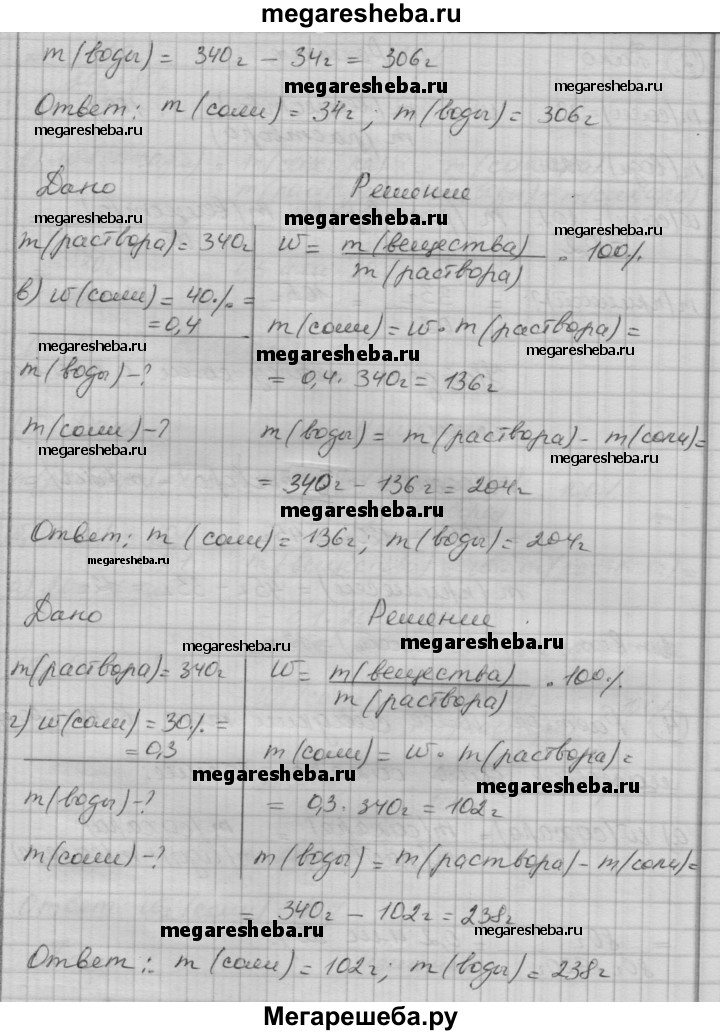 megaresheba.ru
m(воды) = 340г - 34г = 306г
megaresheba.ru
megaresheba.ru
Ответ: m(соли) = 34г; m(воды) = 306г
megaresheba.ru
megaresheba.ru
Дано Решение
megaresheba.ru
megaresheba.ru
m(раствора) = 340г
в) w(соли) = 40% =
= 0,4
w = m(вещества) / m(раствора) · 100%
m(соли) = w · m(раствора) =
megaresheba.ru
megaresheba.ru
megaresheba.ru
m(воды) - ?
= 0,4 · 340г = 136г
m(соли) - ?
m(воды) = m(раствора) - m(соли) =
megaresheba.ru
= 340г - 136г = 204г
megaresheba.ru
megaresheba.ru
Ответ: m(соли) = 136г; m(воды) = 204г
megaresheba.ru
Дано Решение
megaresheba.ru
megaresheba.ru
m(раствора) = 340г
г) w(соли) = 30% =
= 0,3
w = m(вещества) / m(раствора) · 100%
m(соли) = w · m(раствора) =
megaresheba.ru
megaresheba.ru
m(воды) - ?
= 0,3 · 340г = 102г
m(соли) - ?
m(воды) = m(раствора) - m(соли) =
= 340г - 102г = 238г
megaresheba.ru
megaresheba.ru
Ответ: m(соли) = 102г; m(воды) = 238г
Мегарешеба.ру